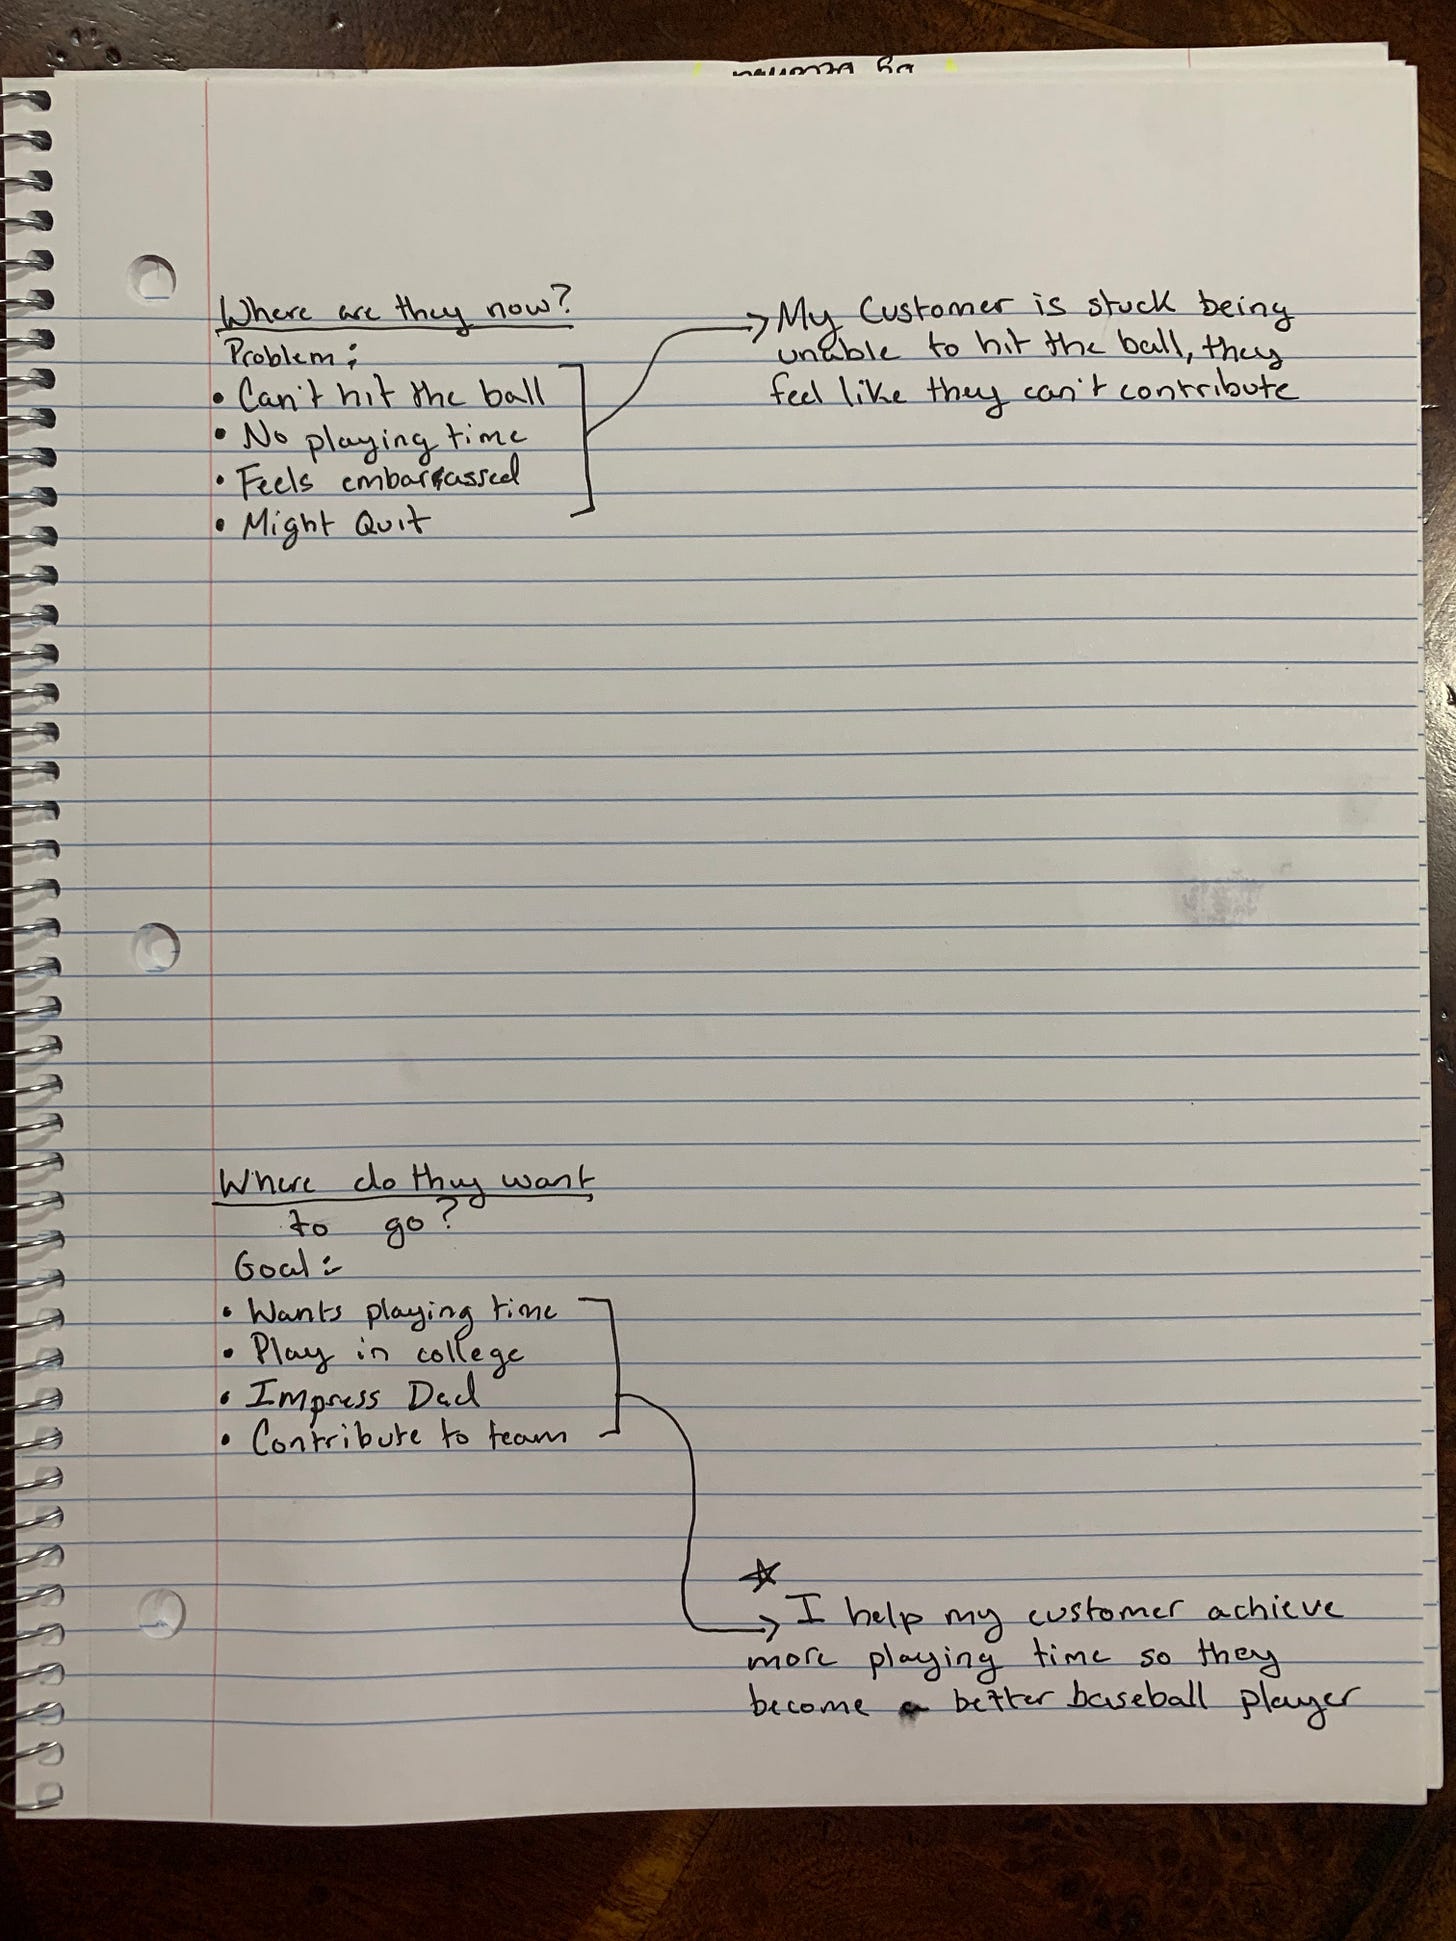 Where are they now?
Problem:
• Can't hit the ball
• No playing time
• Feels embarrassed
• Might Quit
My Customer is stuck being
unable to hit the ball, they
feel like they can't contribute
Where do they want
to go?
Goal:
• Wants playing time
• Play in college
• Impress Dad
• Contribute to team
I help my customer achieve
more playing time so they
become a better baseball player